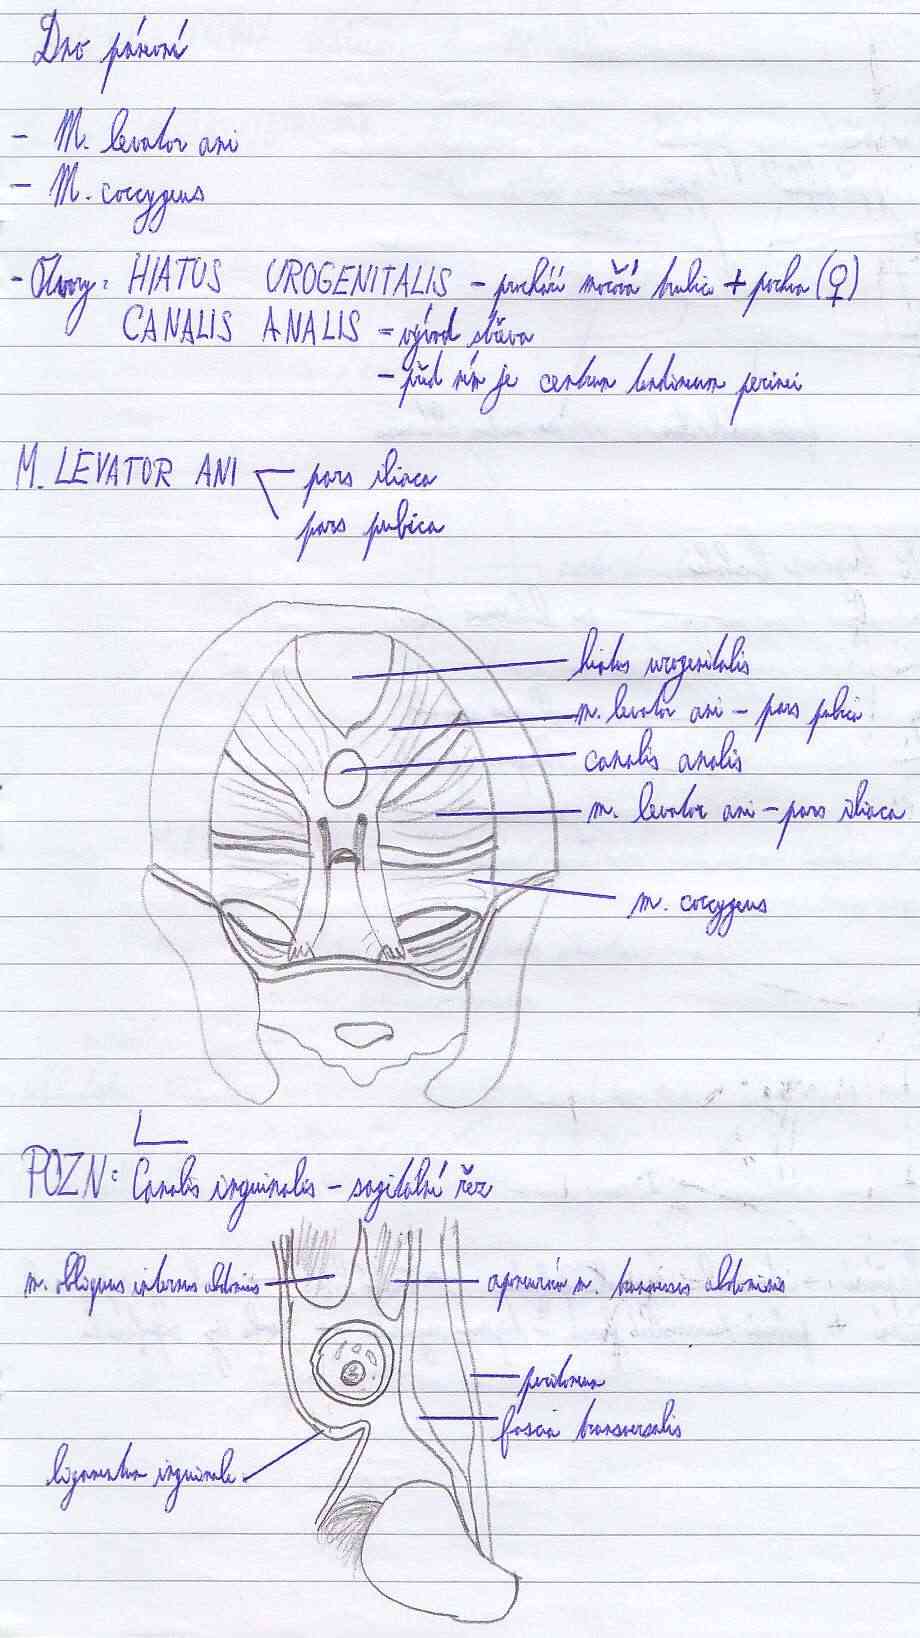 Dno pánevní
- M. levator ani
- M. coccygeus
- Otvory: HIATUS UROGENITALIS - prochází močová trubice + pochva (♀)
CANALIS ANALIS - vývod střeva
- před ním je centrum tendineum perinei
M. LEVATOR ANI
pars iliaca
pars pubica
hiatus urogenitalis
m. levator ani - pars pubica
canalis analis
m. levator ani - pars iliaca
m. coccygeus
POZN: Canalis inguinalis - sagitální řez
m. obliquus internus abdominis
aponeuróza m. transversus abdominis
peritoneum
fascia transversalis
ligamentum inguinale